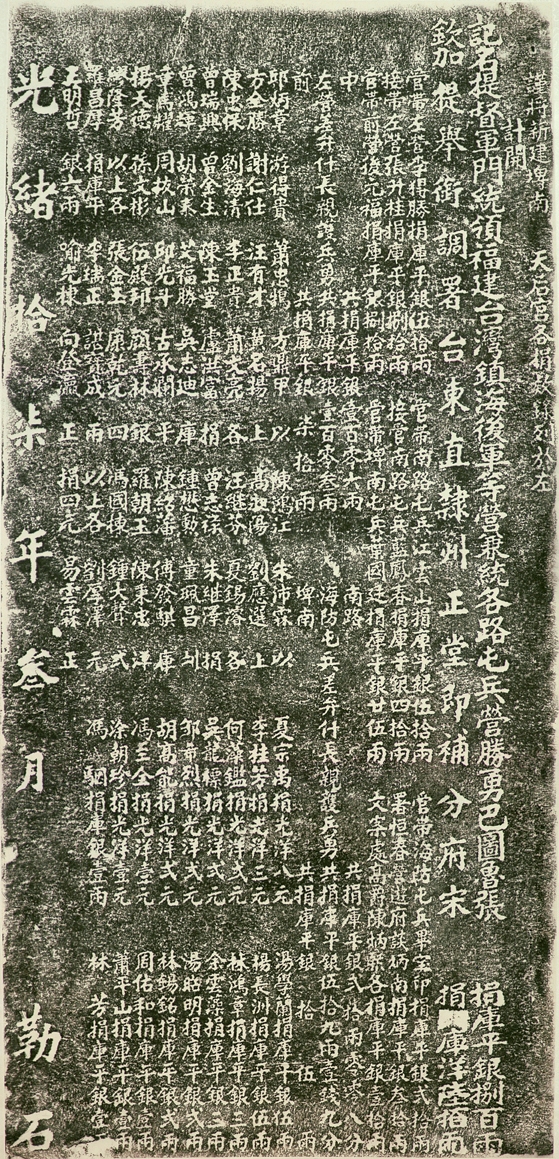 謹將新建埤南　天后宮各捐款繕列於左
計開
記名提督軍門統領福建台灣鎮海後軍等營兼統各路屯兵營勝勇巴圖魯張　捐庫平銀捌百兩
欽加提舉銜調署台東直隸州正堂即補分府宋　捐庫洋陸拾兩
管帶左營李得勝捐庫平銀伍拾兩　管帶南路屯兵江雲山捐庫平銀伍拾兩　管帶海防屯兵畢印捐庫平銀弍拾兩
接帶左營張升桂捐庫平銀捌拾兩　接管南路屯兵藍鳳春捐庫平銀四拾兩　署恒春營遊府談炳南捐庫平銀叁拾兩
管帶前營後元福捐庫平銀捌拾兩　管帶埤南屯兵葉國廷捐庫平銀廿伍兩　文案處高爵陳炳熙各捐庫平銀壹拾兩
中　共捐庫平銀壹百零六兩　南路　共捐庫平銀弍拾兩零零八分
左營差弁什長親護兵勇共捐庫平銀壹百零叁兩　海防屯兵差弁什長親護兵勇共捐庫平銀伍拾九兩壹錢九分
前　共捐庫平銀柒拾兩　埤南　共捐庫平銀拾伍兩
邱炳章　游得貴　蕭忠鵠　方鼎甲　以　陳鴻江　朱沛霖　以　夏宗禹捐光洋八元　湯學蘭捐庫平銀伍兩
方全勝　謝仁仕　汪有才　黃名揚　上　高淑陽　劉應選　上　李桂芳捐光洋三元　楊長洲捐庫平銀伍兩
陳忠保　劉海清　李正貴　蕭文亮　各　汪繼芬　夏錫溶　各　何藻鑑捐光洋弍元　林鴻章捐庫平銀三兩
曾瑞興　曾金生　陳玉堂　盧洪富　捐　曾志祿　朱維澤　捐　吳龍標捐光洋弍元　余雲藻捐庫平銀三兩
曾鴻輝　胡榮泰　艾福勝　吳志迪　庫　鍾懋勳　童珮昌　鄒希烈捐光洋弍元　湯昭明捐庫平銀弍兩
章萬耀　周拔山　邱光斗　古承瀾　平　陳紹藩　傅發騏　庫　胡高能捐光洋弍元　林錫銘捐庫平銀弍兩
楊天德　孫文彬　伍殿邦　顏壽林　銀　羅朝玉　陳東忠　洋　馮至全捐光洋壹元　周佑和捐庫平銀壹兩
隆芳　以上各　張金玉　康乾元　四　馮國棟　鍾大聲　弍　涂朝珍捐光洋壹元　蕭平山捐庫平銀壹兩
羅昌厚　捐庫平　李瑞正　諶寶成　兩　以上各　劉厚澤　元　馮駟捐庫銀壹兩　林芳捐庫平銀壹
王明哲　銀六兩　喻光棟　向發瀛　正　捐四元　易雲霖　正
光緒拾柒年叁月　勒石